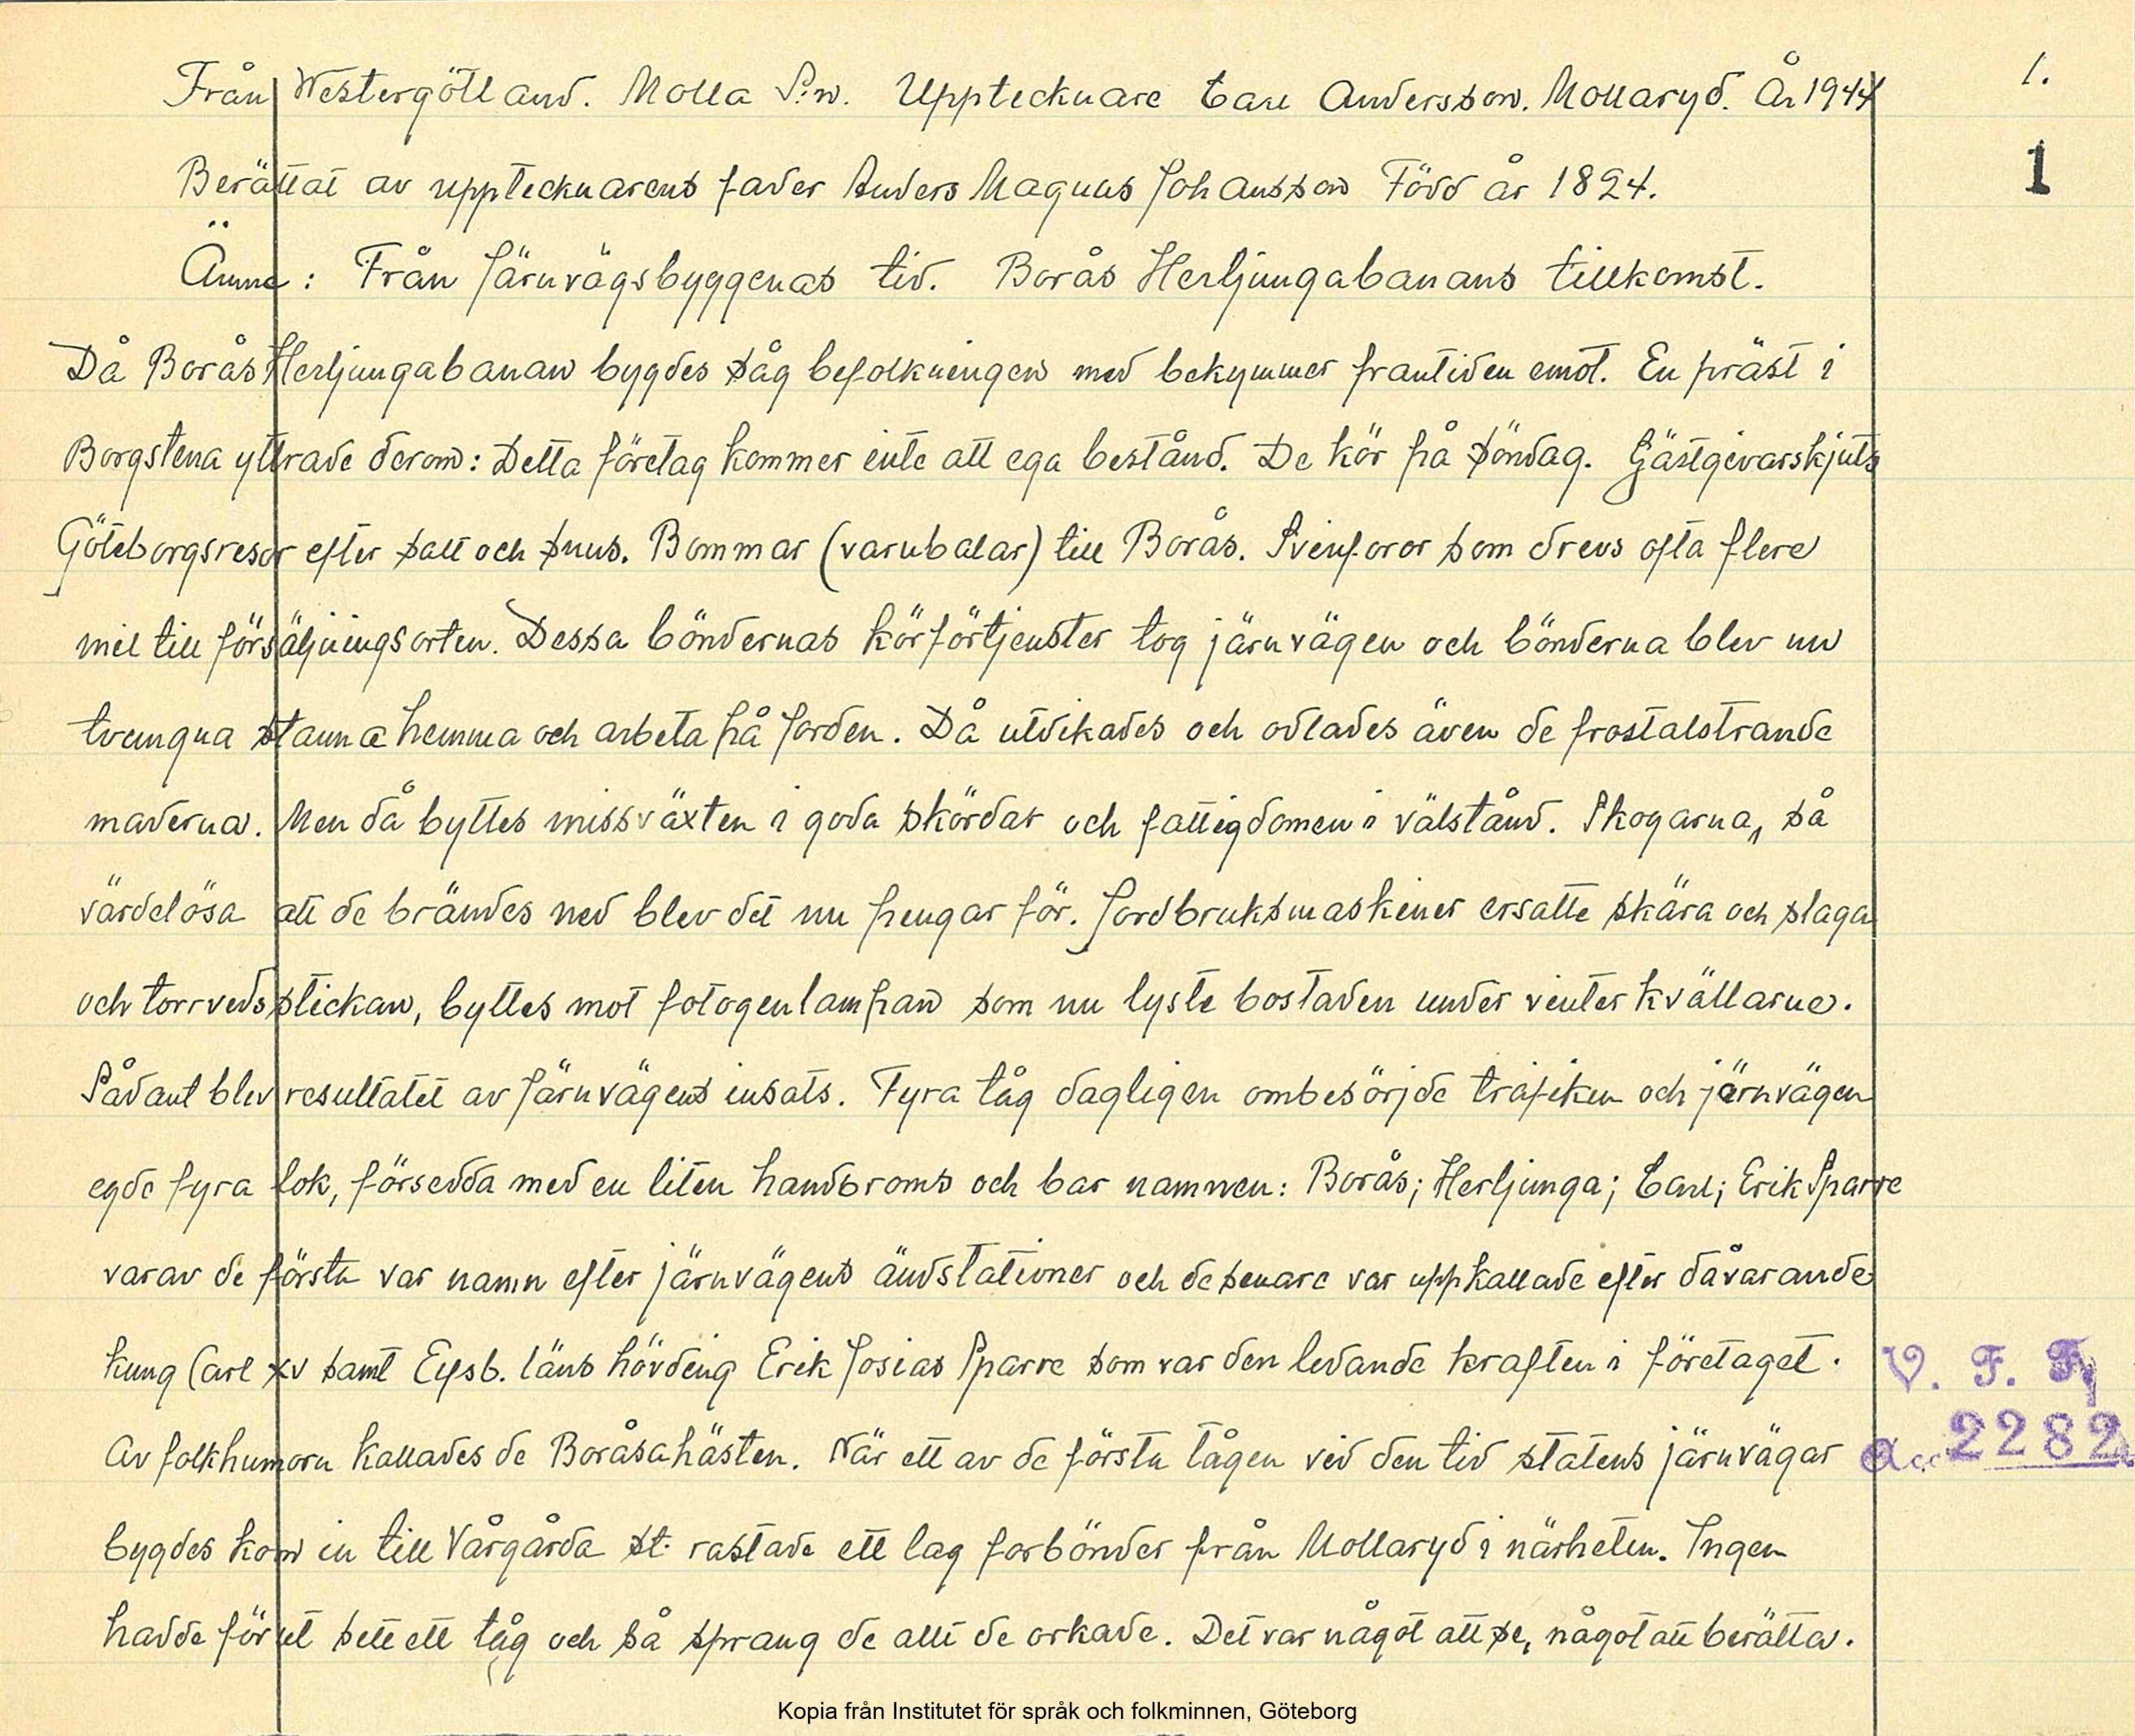 Från Westergötland. Molla S:n. Upptecknare Carl Andersson. Mollaryd. År 1944
1.
Berättat av upptecknarens fader Anders Magnus Johansson Född år 1824.
1
Ämne: Från Järnvägsbyggenas tid. Borås Herljungabanans tillkomst.
Då Borås Herljungabanan bygdes såg befolkningen med bekymmer framtiden emot. En präst i
Borgstena yttrade derom: Detta företag kommer inte att ega bestånd. De kör på söndag. Gästgivarskjuts
Göteborgsresor efter salt och snus. Bommar (varubalar) till Borås. Svinforor som drevs ofta flere
mil till försäljningsorten. Dessa böndernas körförtjenster tog järnvägen och bönderna blev nu
tvungna stanna hemma och arbeta på Jorden. Då utdikades och odlades även de frostalstrande
maderna. Men då byttes missväxten i goda skördar och fattigdomen i välstånd. Skogarna, så
värdelösa att de brändes ned blev det nu pengar för. Jordbruksmaskiner ersatte skära och slaga
och torrvedsstickan, byttes mot fotogenlampan som nu lyste bostaden under vinterkvällarne.
Sådant blev resultatet av Järnvägens insats. Fyra tåg dagligen ombesörjde trafiken och järnvägen
egde fyra lok, försedda med en liten handbroms och bar namnen: Borås; Herljunga; Carl; Erik Sparre
varav de första var namn efter järnvägens ändstationer och de senare var uppkallade efter dåvarande
kung Carl XV samt Elfsb. läns hövding Erik Josias Sparre som var den ledande kraften i företaget.
V. F. F.
Av folkhumorn kallades de Boråsahästen. När ett av de första tågen vid den tid statens järnvägar
Acc. 2282
bygdes kom in till Vårgårda st. rastade ett lag forbönder från Mollaryd i närheten. Ingen
hadde förut sett ett tåg och så sprang de allt de orkade. Det var något att se, något att berätta.
Kopia från Institutet för språk och folkminnen, Göteborg